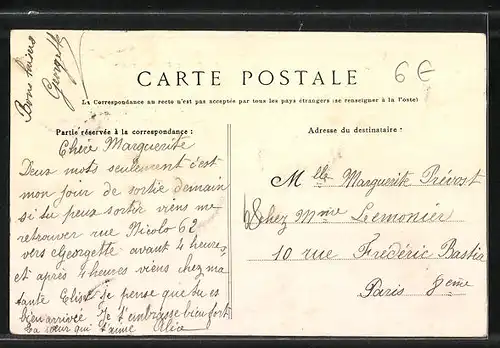 Bons baisers
Georgette
6€
CARTE POSTALE
La Correspondance au recto n'est pas acceptée par tous les pays étrangers (se renseigner à la Poste)
Partie réservée à la correspondance :
Adresse du destinataire :
Chère Marguerite
Deux mots seulement c'est
mon jour de sortie demain
si tu peux sortir viens me
retrouver rue Nicolo 62
vers Georgette avant 4 heures
et après 4 heures viens chez ma
tante Elise Je pense que tu es
bien arrivée Je t'embrasse bien fort
La sœur qui t'aime Alice
Mlle Marguerite Prévost
chez Mme Lemonier
10 rue Frédéric Bastia
Paris 8eme